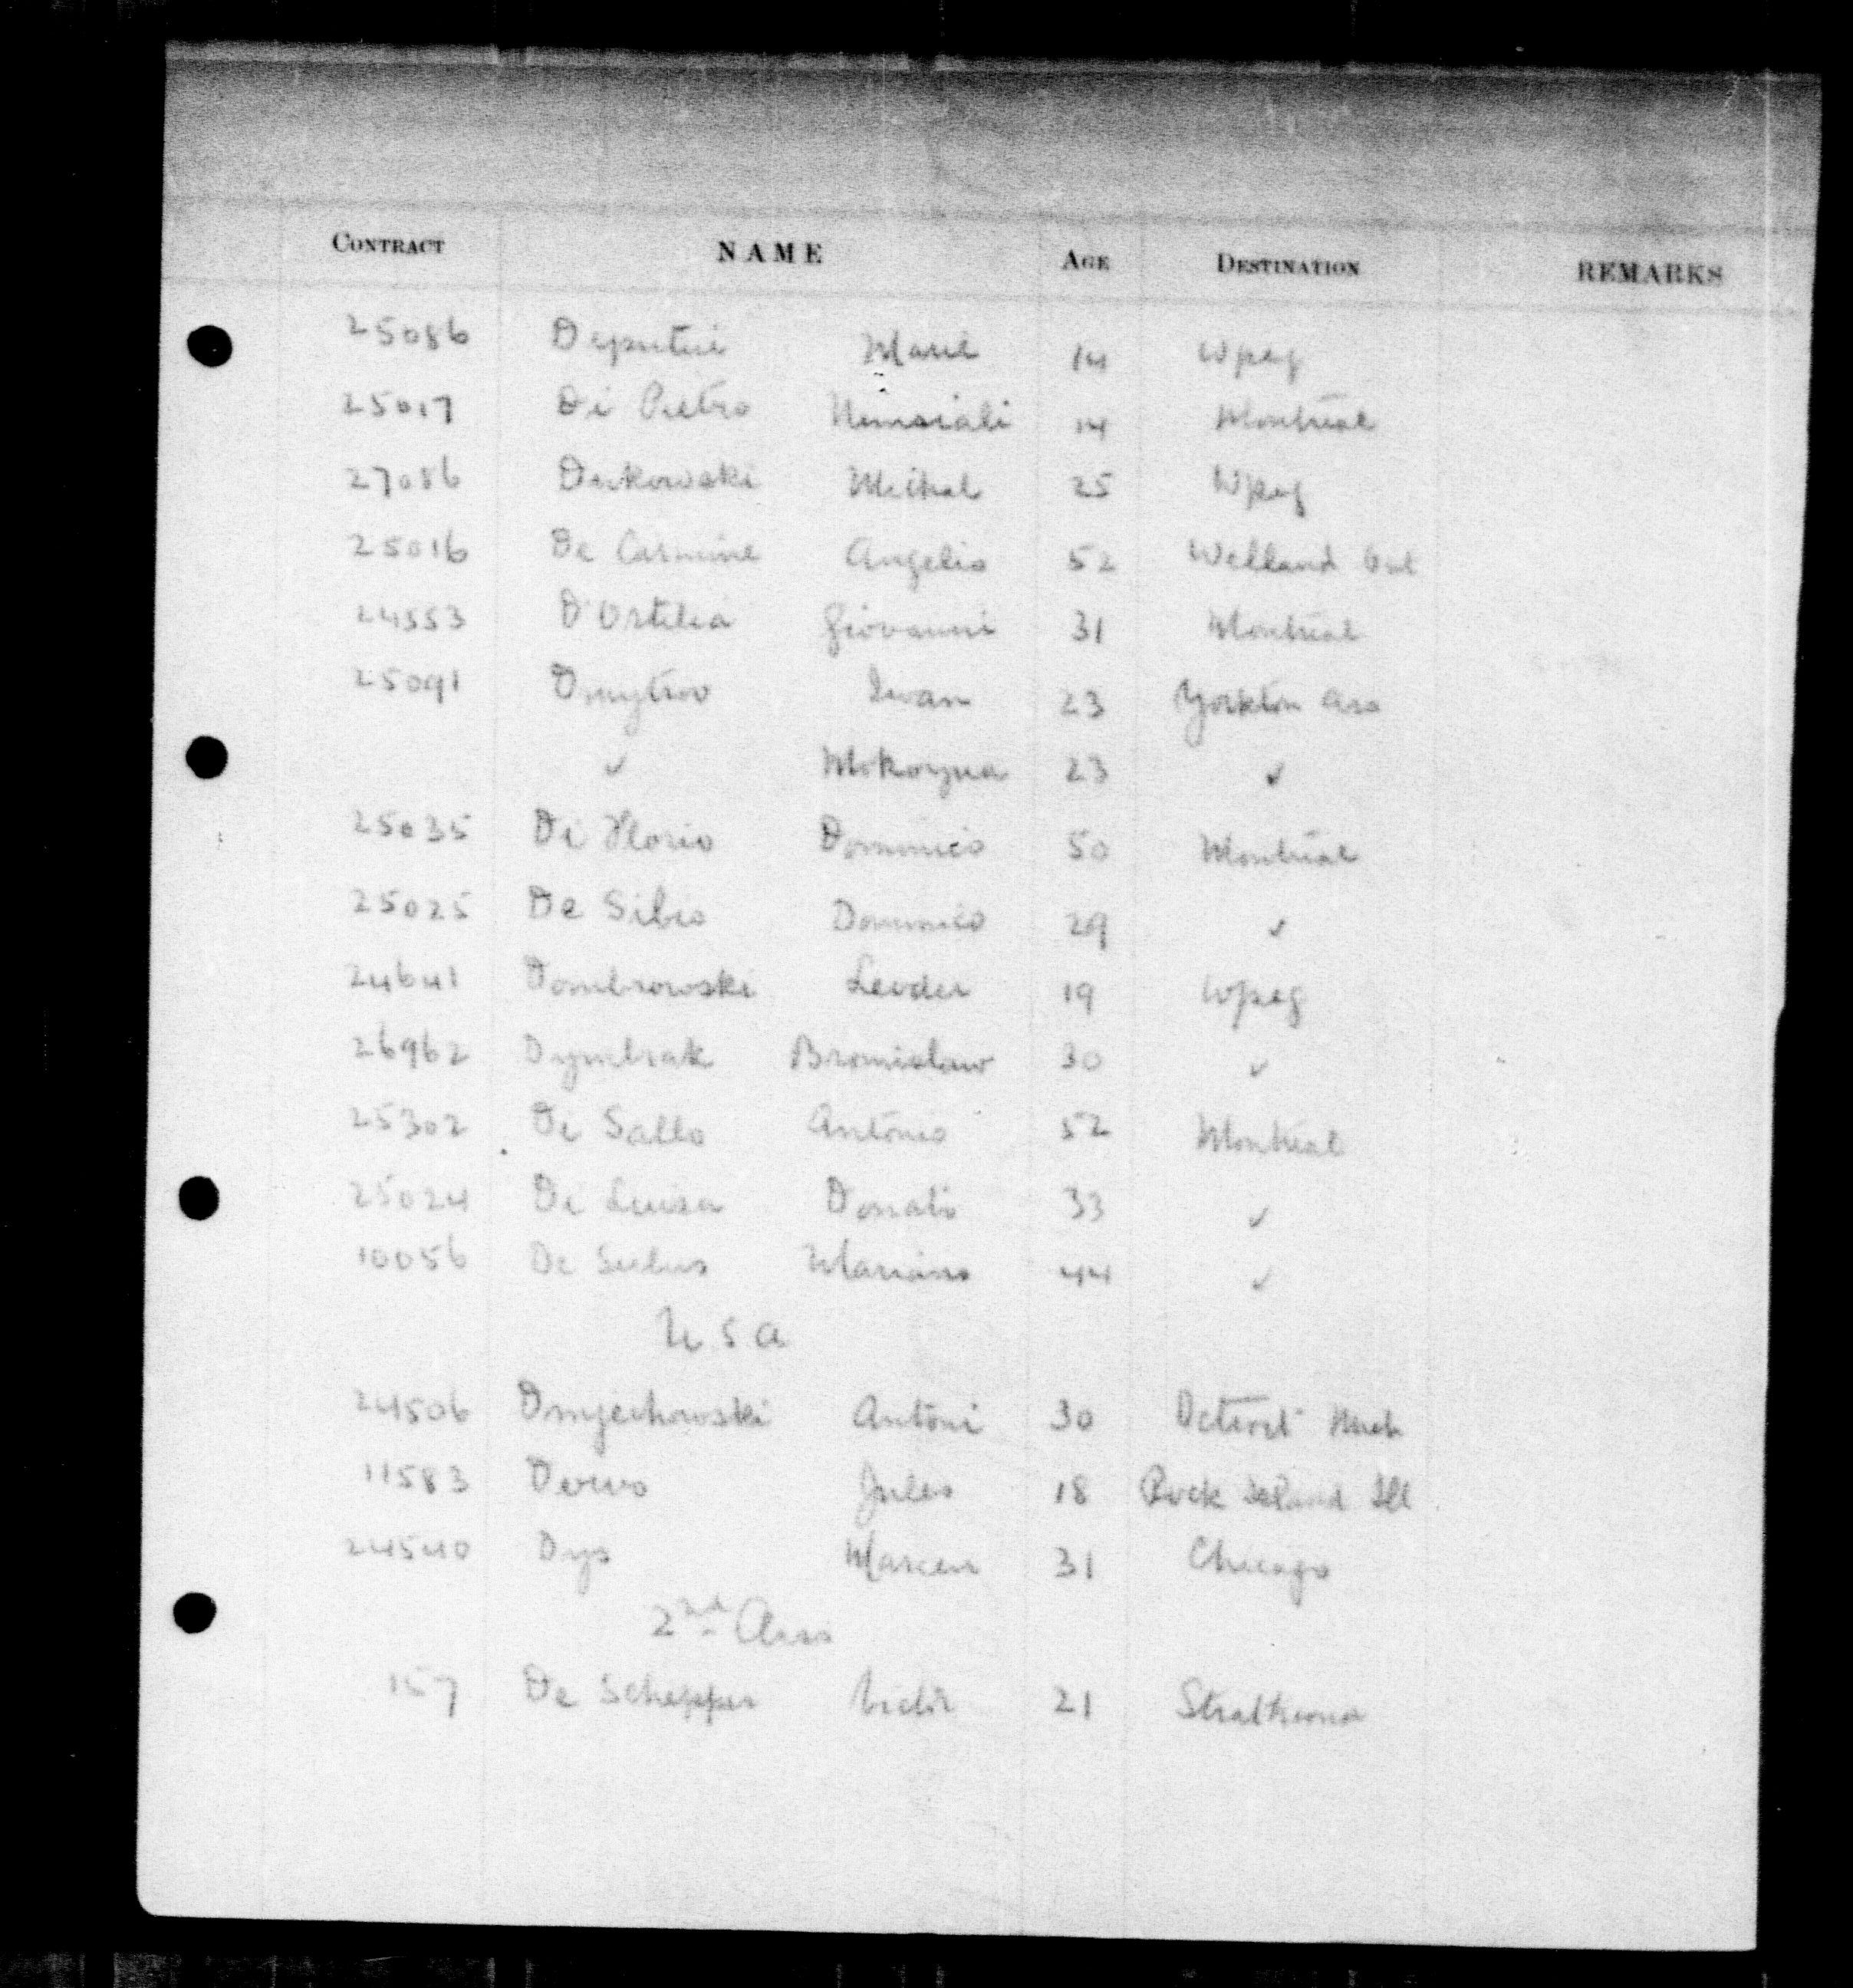 CONTRACT NAME AGE DESTINATION REMARKS
25086 Deputui Marie 14 Wpeg
25017 Di Pietro 14 Montreal
27086 Derkowski Michal 25 Wpeg
25016 De Carmine Angelio 52 Welland Ont
24553 D'Ortilia Giovanni 31 Montreal
25091 Dmytrow Iwan 23 Yorkton
✓ 23 ✓
25035 Di Florio Dominico 50 Montreal
25025 De Silvio Dominico 29 ✓
24641 Dombrowski 19 Wpeg
26962 Bronislaw 30 ✓
25302 Di Sallo Antonio 52 Montreal
25024 Di Luisa Donato 33 ✓
10056 De Mariano 44 ✓
U S A
24506 Dmyechowski Antoni 30 Detroit Mich
11583 Jules 18 Rock Island Ill
24540 Dys Marcen 31 Chicago
2nd Class
157 De Schepper Victor 21 Strathcona